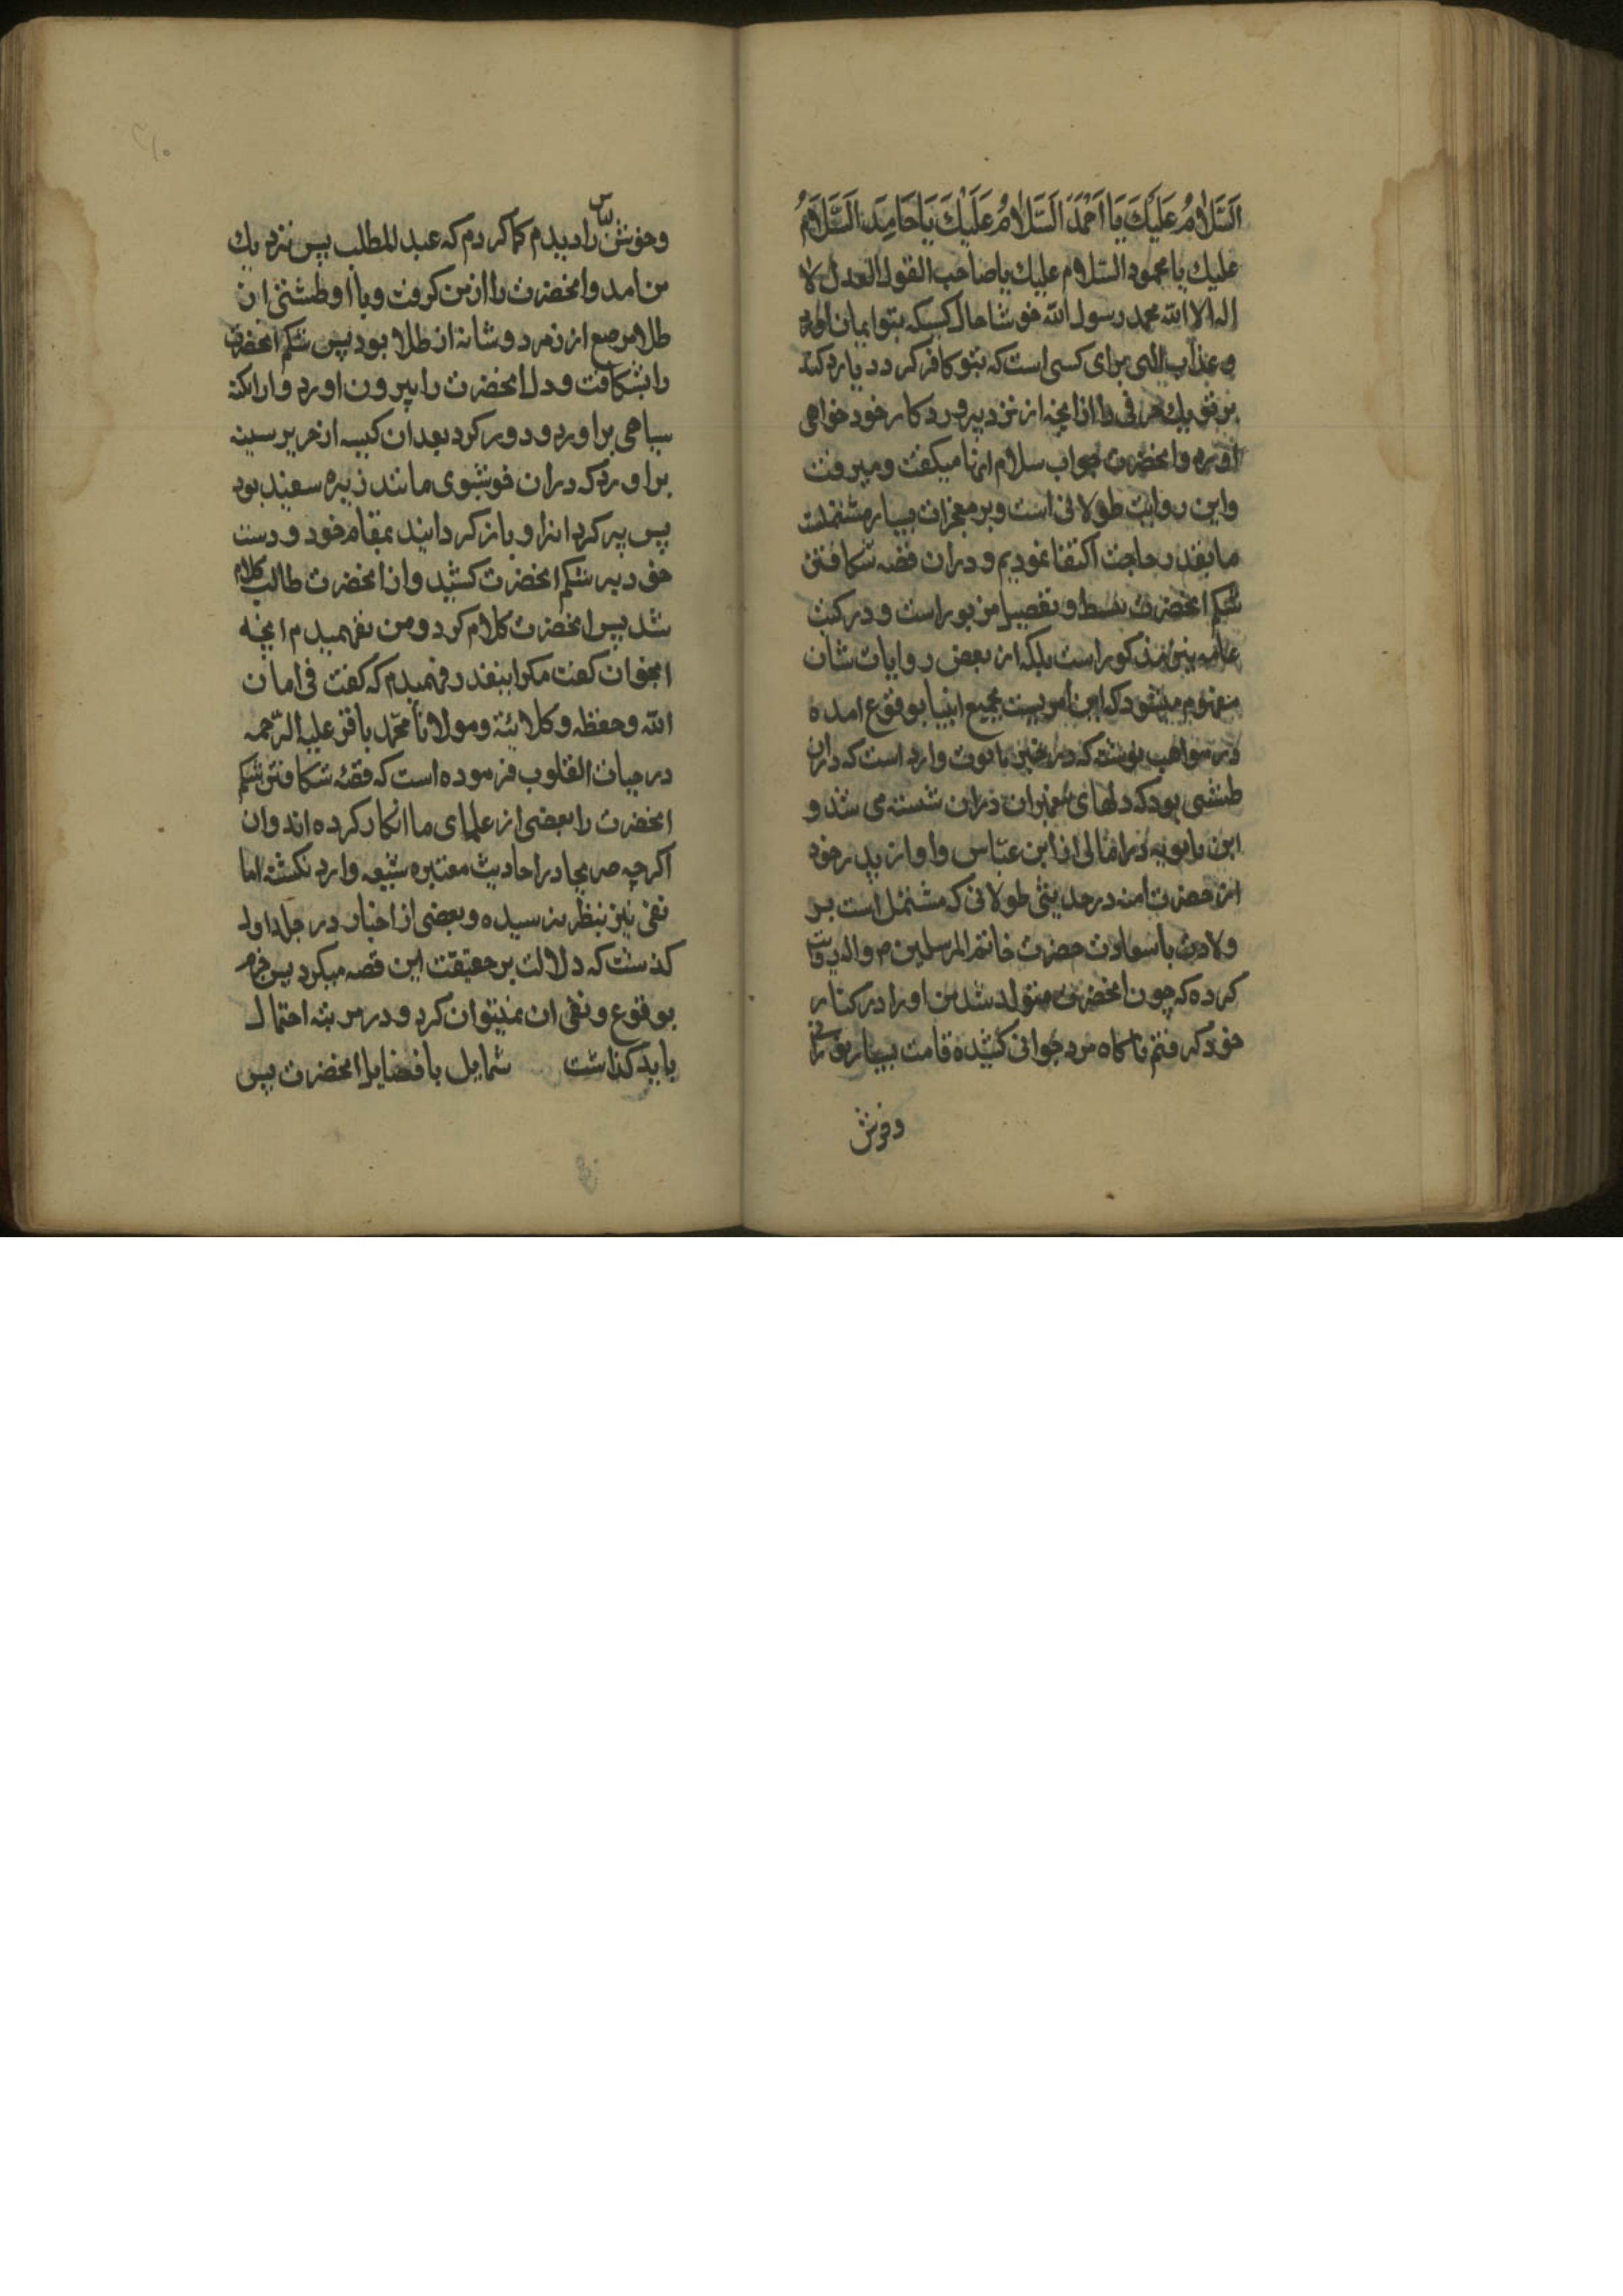 اَلسَّلامُ عَلَيْكَ يَا اَحْمَدَ اَلسَّلامُ عَلَيْكَ يَا حَامِدَ اَلسَّلامُ
عليك يا محمود السّلام عليك يا صاحب القول العدل لا
اله الا اللّه محمد رسول اللّه خوشا حال كسيكه بتو ايمان اورد
و عذاب الهى براى كسى است كه بتو كافر كردد يا رد كند
بر تو يك حرفى را از انچه از نزد پروردكار خود خواهى
اورد و انحضرت جواب سلام انها ميكفت و ميرفت
و اين روايت طولانى است و بر معجزات بسيار مشتملست
ما بقدر حاجت اكتفا نموديم و دران قصه شكافتن
شكم انحضرت ببسط و تفصيل مزبور است و در كتب
عامه نيز مذكور است بلكه از بعض روايات شان
مفهوم ميشود كه اين امريست بجميع انبيا بوقوع امده
در مواهب نوشته كه در خبر تابوت وارد است كه دران
طشتى بود كه دلهاى پيغمبران دران شسته مى شد و
ابن بابويه در امالى از ابن عبّاس و او از پدر خود
از حضرت امنه در حديثى طولانى كه مشتمل است بر
ولادت با سعادت حضرت خاتم المرسلين ص و اله روايت
كرده كه چون انحضرت متولد شد من او را در كنار
خود كرفتم ناكاه مرد جوانى كشيده قامت بسيار نورانى
و خوش
و خوش لباس را ديدم كمان كردم كه عبد المطلب پس نزديك
من امد و انحضرت را از من كرفت و با او طشتى از
طلا مرصع از زمرد و شانه از طلا بود پس شكم انحضرت
را بشكافت و دل انحضرت را بيرون اورد و ازان نكته
سياهى براورد و دور كرد بعد ان كيسه از حرير سبز
براورد كه دران خوشبوى مانند زيره سفيد بود
پس پر كرد انرا و باز كردانيد بمقام خود و دست
خود بر شكم انحضرت كشيد و از انحضرت طالب كلام
شد پس انحضرت كلام كرد و من نفهميدم انچه
انجوان كفت مكر اينقدر فهميدم كه كفت فى امان
اللّه و حفظه و كلائته و مولانا محمّد باقر عليه الرّحمه
در حيات القلوب فرموده است كه قصّه شكافتن شكم
انحضرت را بعضى از علماى ما انكار كرده اند و ان
اكرچه صريحا در احاديث معتبره شيعه وارد نكشته اما
نفى نيز بنظر نرسيده و بعضى از اخبار در جلد اول
كذشت كه دلالت بر حقيقت اين قصه ميكرد پس جزم
بوقوع و نفى ان نميتوان كرد و در مرتبه احتمال
بايد كذاشت شمايل با فضايل انحضرت پس